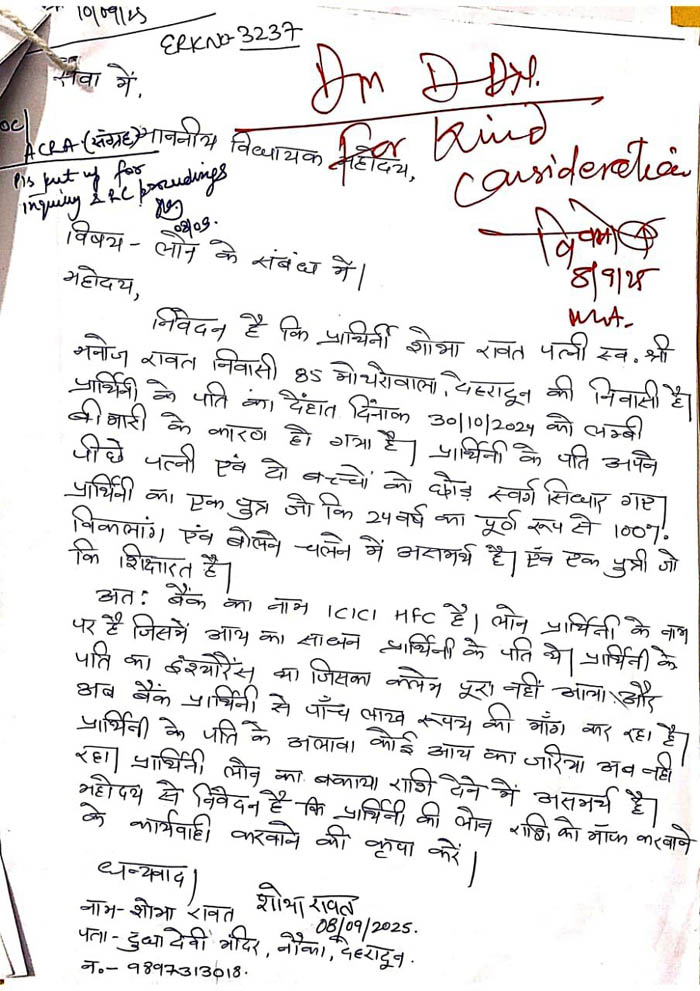 10/09/25
ERKNo-3237
सेवा में,
Dm D DN.
for kind
consideration
8/9/25
MLA.
OC/
ACRA-(संग्रह)
Pls put up for
inquiry & RC proceedings
08/09.
माननीय विधायक महोदय,
विषय - लोन के संबंध में।
महोदय,
निवेदन है कि प्रार्थिनी शोभा रावत पत्नी स्व. श्री
मनोज रावत निवासी 85 मोथरोवाला, देहरादून की निवासी है।
प्रार्थिनी के पति का देंहात दिनांक 30/10/2024 को लम्बी
बीमारी के कारण हो गया है। प्रार्थिनी के पति अपने
पीछे पत्नी एवं दो बच्चों को छोड़ स्वर्ग सिधार गए।
प्रार्थिनी का एक पुत्र जो कि 24 वर्ष का पूर्ण रूप से 100%
विकलांग, एंव बोलने चलने में असमर्थ है। एंव एक पुत्री जो
कि शिक्षारत है।
अतः बैंक का नाम ICICI HFC है। लोन प्रार्थिनी के नाम
पर है जिसमें आय का साधन प्रार्थिनी के पति थे। प्रार्थिनी के
पति का इंश्योरेंस था जिसका क्लेम पूरा नहीं आया और
अब बैंक प्रार्थिनी से पाँच लाख रूपय की माँग कर रहा है।
प्रार्थिनी के पति के अलावा कोई आय का जरिया अब नही
रहा। प्रार्थिनी लोन का बकाया राशि देने में असमर्थ है।
महोदय से निवेदन है कि प्रार्थिनी की लोन राशि को माफ करवाने
के कार्यवाही करवाने की कृपा करें।
धन्यवाद।
नाम- शोभा रावत शोभा रावत
08/09/2025.
पता- दुधा देवी मंदिर, नौका, देहरादून.
न.- 9897313018.